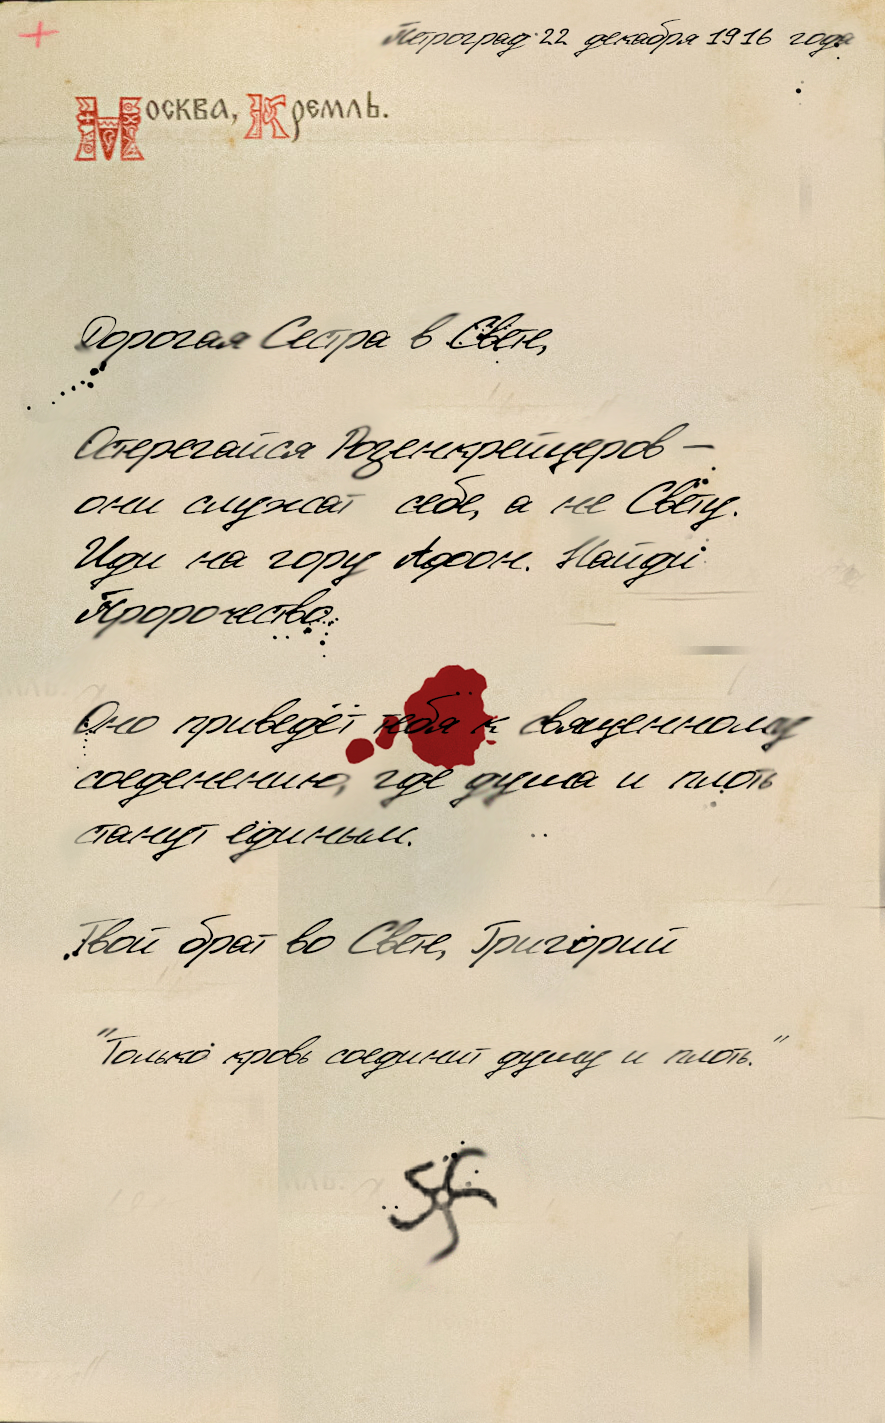 Петроград 22 декабря 1916 года
Москва, Кремль.
Дорогая Сестра в Свете,
Остерегайся Розенкрейцеров —
они служат себе, а не Свету.
Иди на гору Афон. Найди
Пророчество.
Оно приведёт тебя к священному
соеденению, где душа и плоть
станут единым.
Твой брат во Свете, Григорий
"Только кровь соединит душу и плоть."